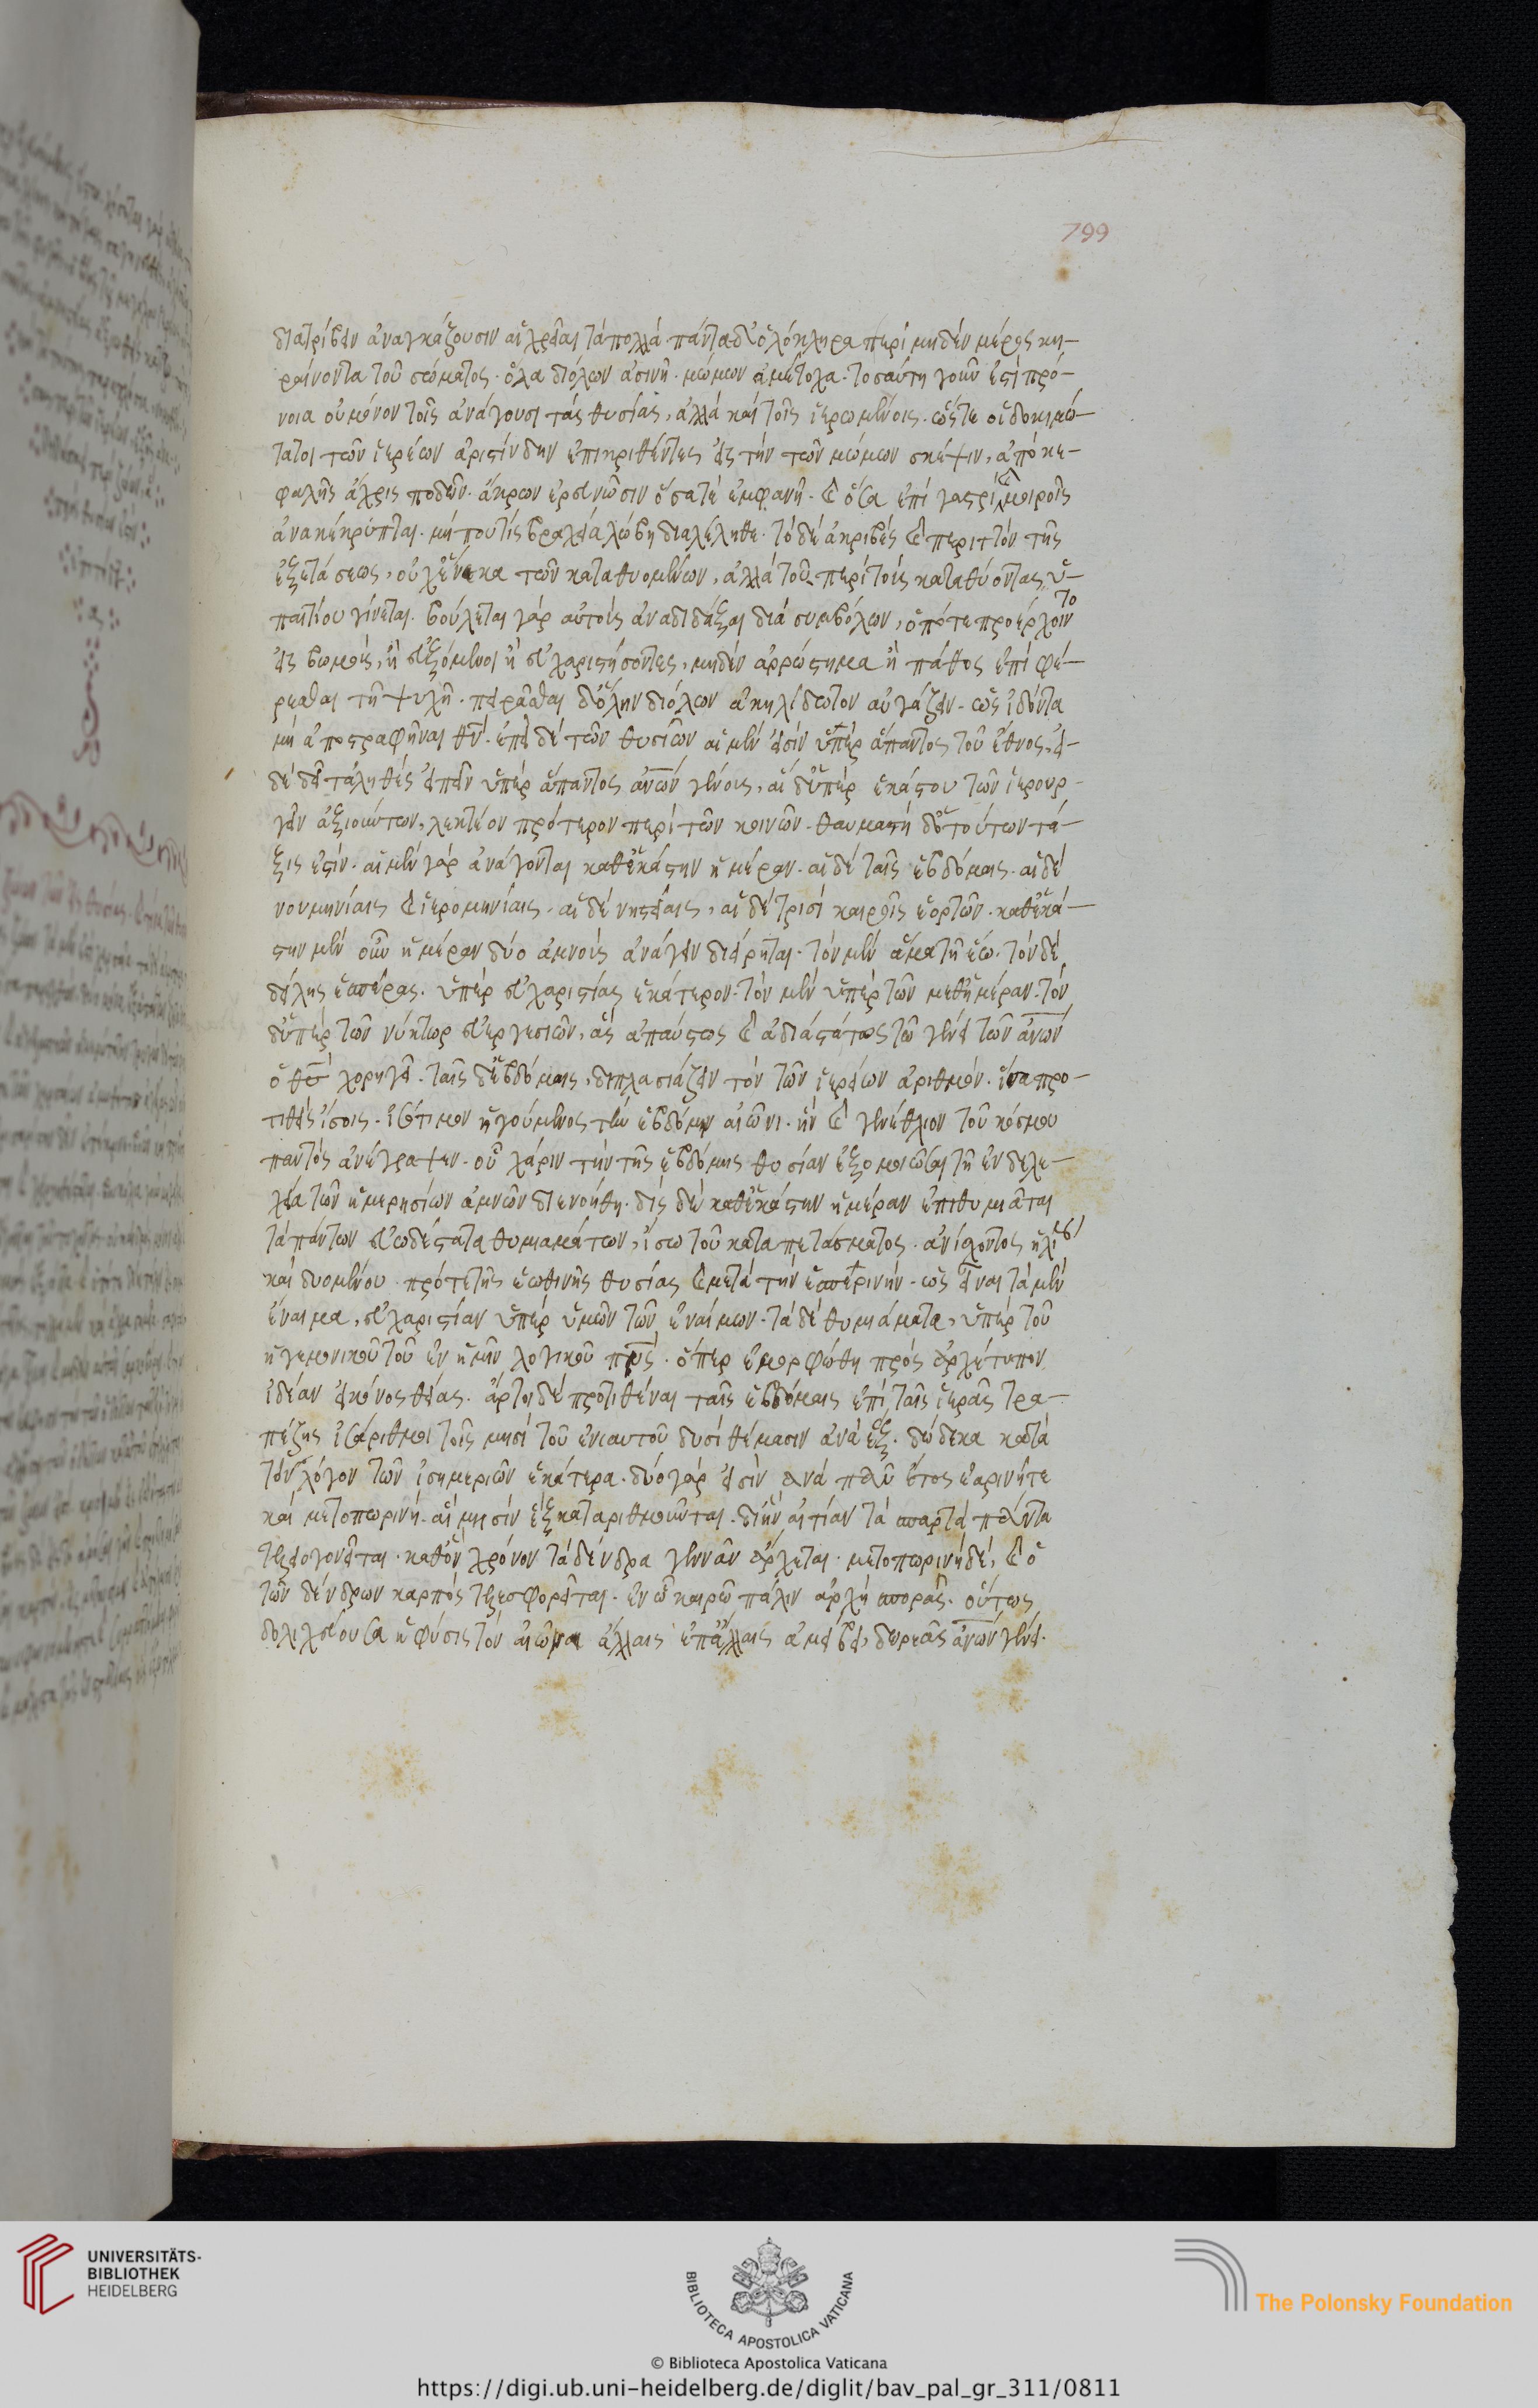 799
διατρίβειν ἀναγκάζουσιν αἱ χρεῖαι τὰ πολλά πάντα δ' ὁλόκληρα περὶ μηδὲν μέρος κη-
ραίνοντα τοῦ σώματος. ὅλα δι' ὅλων ἀσινῆ. μώμων ἀμέτοχα. τοσαύτη γοῦν ἐστὶ πρό-
νοια οὐ μόνον τοῖς ἀνάγουσι τὰς θυσίας, ἀλλὰ καὶ τοῖς ἱερωμένοις. ὥστε οἱ δοκιμώ-
τατοι τῶν ἱερέων ἀριστίνδην ἐπικριθέντες εἰς τὴν τῶν μώμων σκέψιν, ἀπὸ κε-
φαλῆς ἄχρις ποδῶν ἄκρων ἐρευνῶσιν ὅσα τὲ ἐμφανῆ. καὶ ὅσα ἐπὶ γαστρὶ καὶ μηροῖς
ἀνακέκρυπται. μή που τίς βραχεῖα λώβη διαλέληθε. τὸ δὲ ἀκριβές καὶ περιττόν τῆς
ἐξετάσεως, οὐχ ἕνεκα τῶν καταθυομένων, ἀλλὰ τοῦ περὶ τοὺς καταθύοντας ὑ-
παιτίου γίνεται. βούλεται γὰρ αὐτοὺς ἀναδιδάξαι διὰ συμβόλων, ὁπότε προέρχοιντο
εἰς βωμοὺς, ἢ εὐξόμενοι ἢ εὐχαριστήσοντες, μηδὲν ἀρρώστημα ἢ πάθος ἐπιφέ-
ρεσθαι τῇ ψυχῇ. πειρᾶσθαι δ' ὅλην δι' ὅλων ἀκηλίδωτον αὐγάζειν. ὡς ἰδόντα
μὴ ἀποστραφῆναι θν̅. ἐπεὶ δὲ τῶν θυσιῶν αἱ μὲν εἰσὶν ὑπὲρ ἅπαντος τοῦ ἔθνους, εἰ-
δὲ δεῖ τἀληθὲς εἰπεῖν ὑπὲρ ἅπαντος ἀνω̅ν γένους, αἱ δ' ὑπὲρ ἑκάστου τῶν ἱερουρ-
γεῖν ἀξιούντων, λεκτέον πρότερον περὶ τῶν κοινῶν. θαυμαστὴ δὲ τούτων τά-
ξις ἐστίν. αἱ μὲν γὰρ ἀνάγονται καθ' ἑκάστην ἡμέραν. αἱ δὲ ταῖς ἑβδόμαις. αἱ δὲ
νουμηνίαις καὶ ἱερομηνίαις. αἱ δὲ νηστείαις, αἱ δὲ τρισὶ καιροῖς ἑορτῶν. καθ' ἑκά-
στην μὲν οὖν ἡμέραν δύο ἀμνοὺς ἀνάγειν διείρηται. τὸν μὲν ἅμα τῇ ἕῳ. τὸν δὲ
δείλης ἑσπέρας. ὑπὲρ εὐχαριστίας ἑκάτερον. τὸν μὲν ὑπὲρ τῶν μεθ' ἡμέραν. τὸν
δ' ὑπὲρ τῶν νύκτωρ εὐεργεσιῶν, ἃς ἀπαύστως καὶ ἀδιαστάτως τῷ γένει τῶν ἀνω̅ν
ὁ θς̅ χορηγεῖ. ταῖς δ' ἑβδόμαις, διπλασιάζειν τὸν τῶν ἱερείων ἀριθμόν. ἵνα προ-
τιθεὶς ἴσοις. ἰσότιμον ἡγούμενος τὴν ἑβδόμην αἰῶνι. ἣν καὶ γενέθλιον τοῦ κόσμου
παντὸς ἀνέγραψεν. οὗ χάριν τὴν τῆς ἑβδόμης θυσίαν ἐξομοιῶσαι τῇ ἐνδελε-
χεία τῶν ἡμερησίων ἀμνῶν διενοήθη. δὶς δὲ καθ' ἑκάστην ἡμέραν ἐπιθυμιᾶται
τὰ πάντων εὐωδέστατα θυμιαμάτων, εἴσω τοῦ καταπετάσματος. ἀνίσχοντος ἡλίου
καὶ δυομένου. πρό τε τῆς ἑωθινῆς θυσίας καὶ μετὰ τὴν ἑσπερινήν. ὡς εἶναι τὰ μὲν
ἔναιμα, εὐχαριστίαν ὑπὲρ ὑμῶν τῶν ἐναίμων. τὰ δὲ θυμιάματα, ὑπὲρ τοῦ
ἡγεμονικοῦ τοῦ ἐν ἡμῖν λογικοῦ πνς̅. ὅπερ ἐμορφώθη πρὸς ἀρχέτυπον
ἰδέαν εἰκόνος θείας. ἄρτοι δὲ προτιθέναι ταῖς ἑβδόμαις ἐπὶ ταῖς ἱερᾶς τρα-
πέζης ἰσάριθμοι τοῖς μησὶ τοῦ ἐνιαυτοῦ δυσὶ θέμασιν ἀνὰ ἕξ. δώδεκα κατὰ
τὸν λόγον τῶν ἰσημεριῶν ἑκάτερα. δύο γὰρ εἰσὶν ἀνὰ πᾶν ἔτος ἐαρινή τε
καὶ μετοπωρινή. αἳ μησὶν ἓξ καταριθμοῦνται. δι' ἣν αἰτίαν τὰ σπαρτὰ πάντα
τελειογονεῖται. καθ' ὃν χρόνον τὰ δένδρα γεννᾶν ἄρχεται. μετοπωρινὴ δὲ, καὶ ὁ
τῶν δένδρων καρπὸς τελεσφορεῖται. ἐν ᾧ καιρῷ πάλιν ἀρχὴ σπορᾶς. οὕτως
δολιχεύουσα ἡ φύσις τὸν αἰῶνα ἄλλαις ἐπ' ἄλλαις ἀμείβει, δωρεὰς ἀνω̅ν γένει.
UNIVERSITÄTS-
BIBLIOTHEK
HEIDELBERG
BIBLIOTECA APOSTOLICA VATICANA
The Polonsky Foundation
© Biblioteca Apostolica Vaticana
https://digi.ub.uni-heidelberg.de/diglit/bav_pal_gr_311/0811